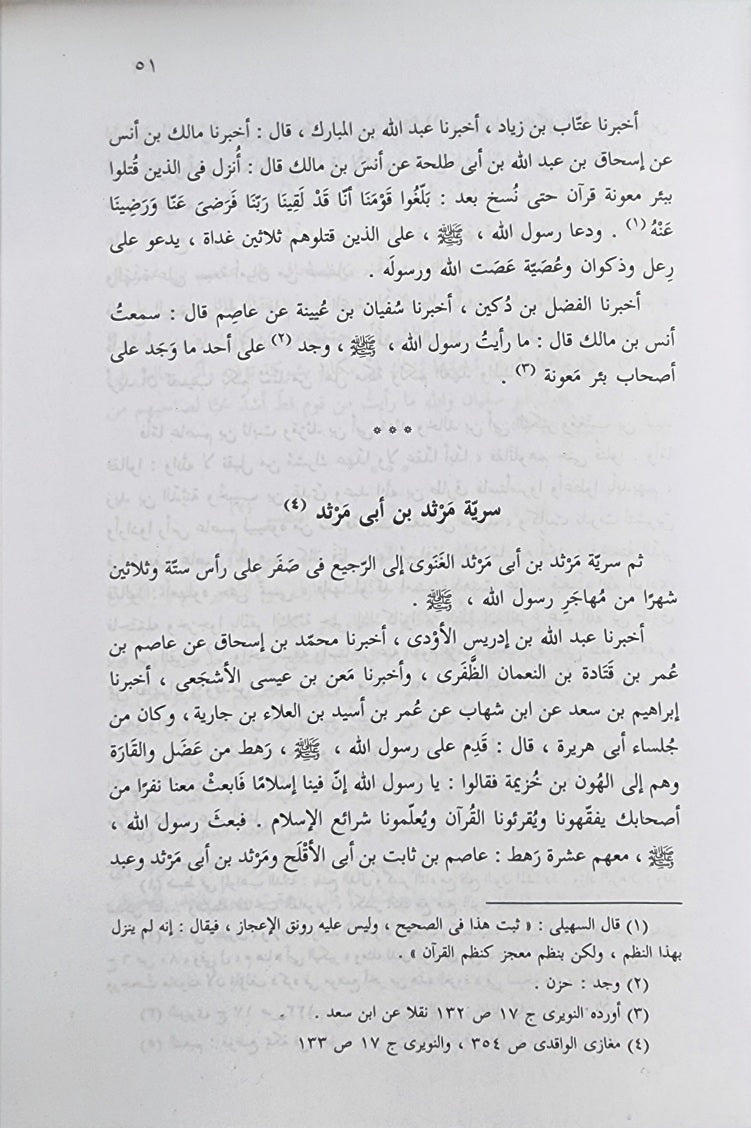 ٥١
أخبرنا عتّاب بن زياد ، أخبرنا عبد الله بن المبارك ، قال : أخبرنا مالك بن أنس
عن إسحاق بن عبد الله بن أبى طلحة عن أنسَ بن مالك قال : أُنزل فى الذين قُتلوا
ببئر معونة قرآن حتى نُسخ بعد : بَلّغُوا قَوْمَنَا أنّا قَدْ لَقِينَا رَبّنَا فَرَضىَ عَنّا وَرَضِينَا
عَنْهُ (١) . ودعا رسول الله ، ﷺ ، على الذين قتلوهم ثلاثين غداة ، يدعو على
رِعل وذكوان وعُصَيّة عَصَت الله ورسولَه .
أخبرنا الفضل بن دُكين ، أخبرنا سُفيان بن عُيينة عن عاصِم قال : سمعتُ
أنس بن مالك قال : ما رأيتُ رسول الله ، ﷺ ، وجد (٢) على أحد ما وَجَد على
أصحاب بئر مَعونة (٣) .
* * *
سريّة مَرْثد بن أبى مَرْثد (٤)
ثم سريّة مَرْثد بن أبى مَرْثد الغَنَوى إلى الرّجيع فى صَفَر على رأس ستّة وثلاثين
شهرًا من مُهاجَرِ رسول الله ، ﷺ .
أخبرنا عبد الله بن إدريس الأوْدى ، أخبرنا محمّد بن إسحاق عن عاصم بن
عُمر بن قَتَادة بن النعمان الظَّفَرى ، وأخبرنا مَعن بن عيسى الأشجَعى ، أخبرنا
إبراهيم بن سعد عن ابن شهاب عن عُمر بن أسيد بن العلاء بن جارية ، وكان من
جُلساء أبى هريرة ، قال : قَدِم على رسول الله ، ﷺ ، رَهط من عَضَل والقَارَة
وهم إلى الهُون بن خُزيمة فقالوا : يا رسول الله إنّ فينا إسلامًا فَابعثْ معنا نفرًا من
أصحابك يفقّهونا ويُقرئونا القُرآن ويُعلّمونا شرائع الإسلام . فبعثَ رسول الله ،
ﷺ ، معهم عشرة رَهط : عاصم بن ثابت بن أبى الأقْلَح ومَرْثد بن أبى مَرْثد وعبد
(١) قال السهيلى : « ثبت هذا فى الصحيح ، وليس عليه رونق الإعجاز ، فيقال : إنه لم ينزل
بهذا النظم ، ولكن بنظم معجز كنظم القرآن » .
(٢) وجد : حزن .
(٣) أورده النويرى ج ١٧ ص ١٣٢ نقلا عن ابن سعد .
(٤) مغازى الواقدى ص ٣٥٤ ، والنويرى ج ١٧ ص ١٣٣